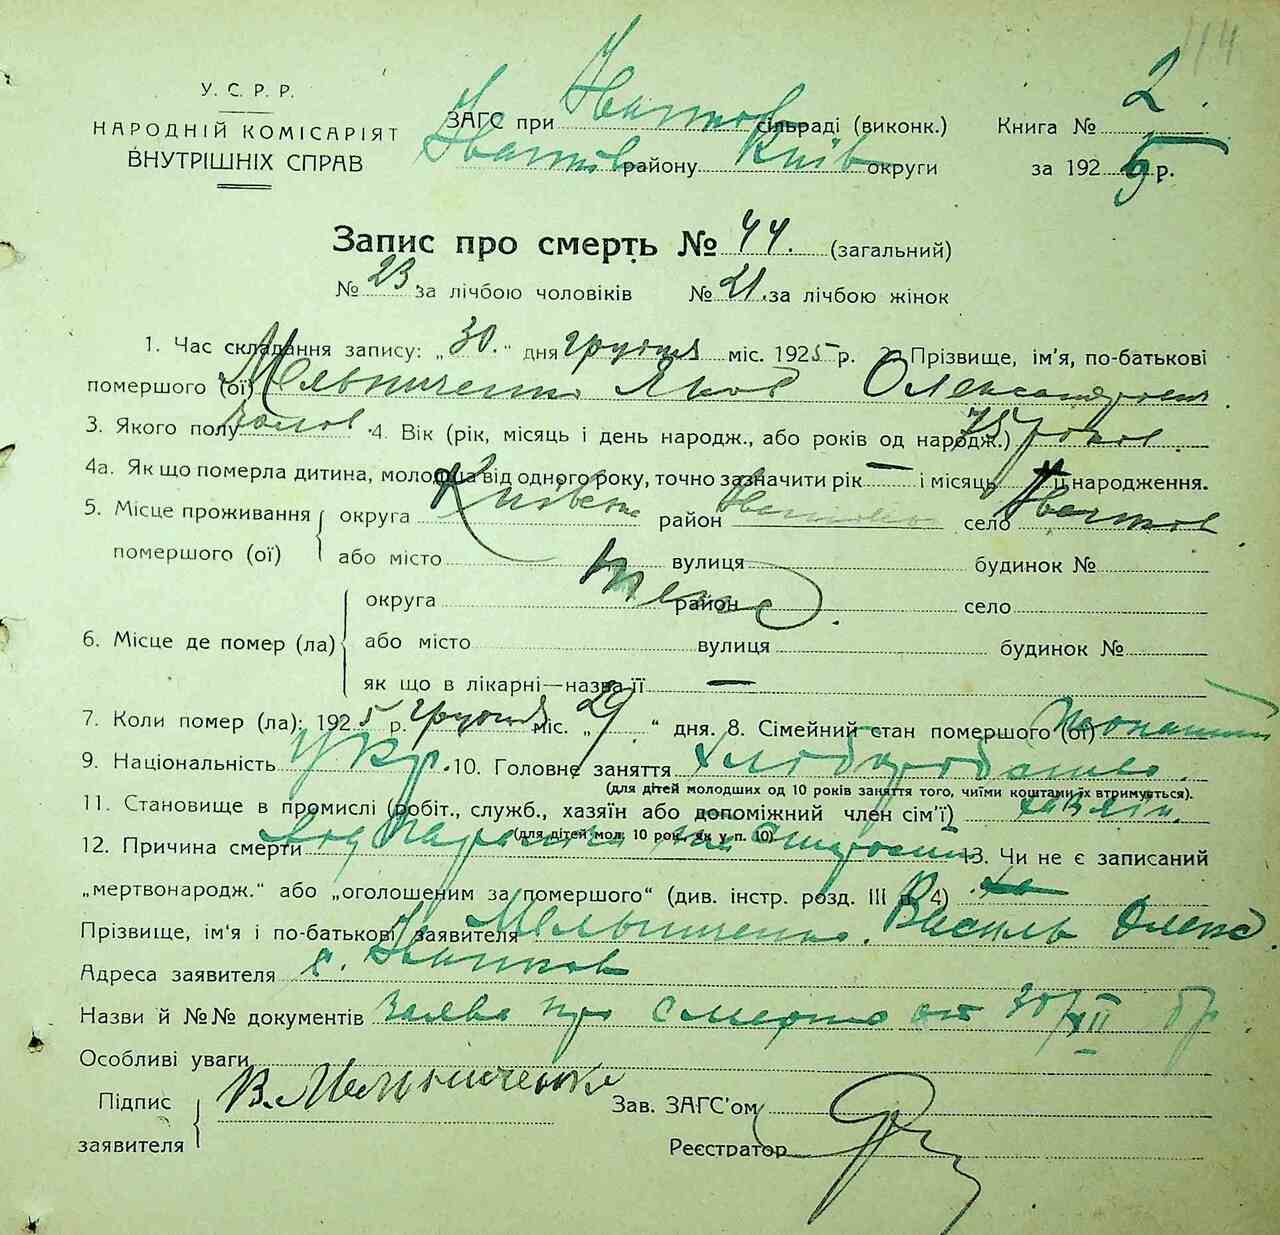 114
У. С. Р. Р.
НАРОДНІЙ КОМІСАРІЯТ
ВНУТРІШНІХ СПРАВ
ЗАГС при сільраді (виконк.) Книга № 2
району Київ округи за 1925 р.
Запис про смерть № 44. (загальний)
№ 23. за лічбою чоловіків № 21. за лічбою жінок
1. Час складання запису: „30.“ дня грудня міс. 1925 р. 2. Прізвище, ім'я, по-батькові
помершого (ої) Мельниченко Яков Олександрович
3. Якого полу чолов. 4. Вік (рік, місяць і день народж., або років од народж.) 75 років
4а. Як що померла дитина, молодша від одного року, точно зазначити рік — і місяць її народження.
5. Місце проживання помершого (ої) округа Київськ район село
або місто вулиця будинок №
6. Місце де помер (ла) округа район село
або місто вулиця будинок №
як що в лікарні—назва її —
7. Коли помер (ла): 1925 р. грудня міс. „29“ дня. 8. Сімейний стан помершого (ої)
9. Національність укр. 10. Головне заняття хліборобство.
(для дітей молодших од 10 років заняття того, чиїми коштами їх втримується).
11. Становище в промислі (робіт., служб., хазяїн або допоміжний член сім'ї) хазяїн.
(для дітей мол. 10 рок. як у п. 10)
12. Причина смерти від 13. Чи не є записаний
„мертвонародж.“ або „оголошеним за помершого“ (див. інстр. розд. III п. 4)
Прізвище, ім'я і по-батькові заявителя Мельниченко. Василь Олекс.
Адреса заявителя с.
Назви й №№ документів Заява про смерть от 30/XII
Особливі уваги
Підпис заявителя В. Мельниченко Зав. ЗАГС'ом
Реєстратор